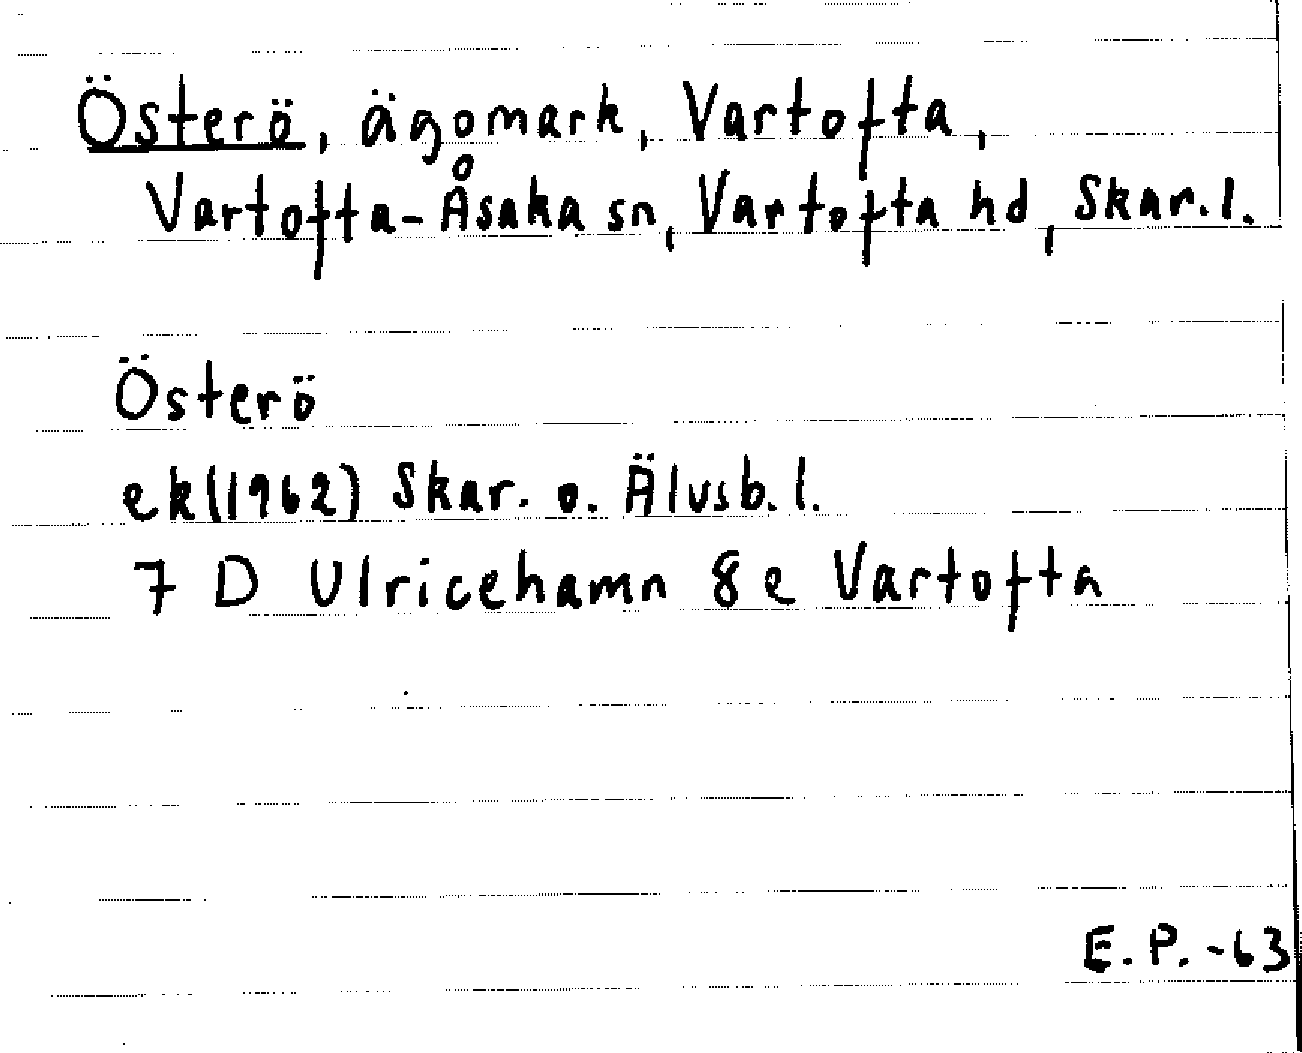 Österö, ägomark, Vartofta,
Vartofta-Åsaka sn, Vartofta hd, Skar. l.
Österö
ek (1962) Skar. o. Älvsb. l.
7 D Ulricehamn 8 e Vartofta
E. P. -63